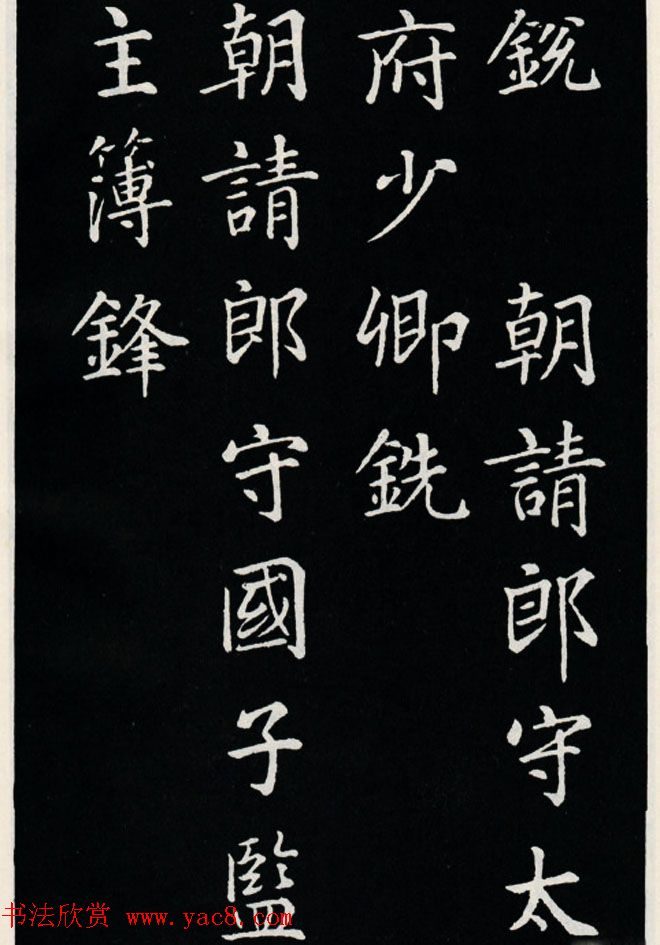 銳 朝請郎守太
府少卿銑
朝請郎守國子監
主簿鋒
书法欣赏 www.yac8.com